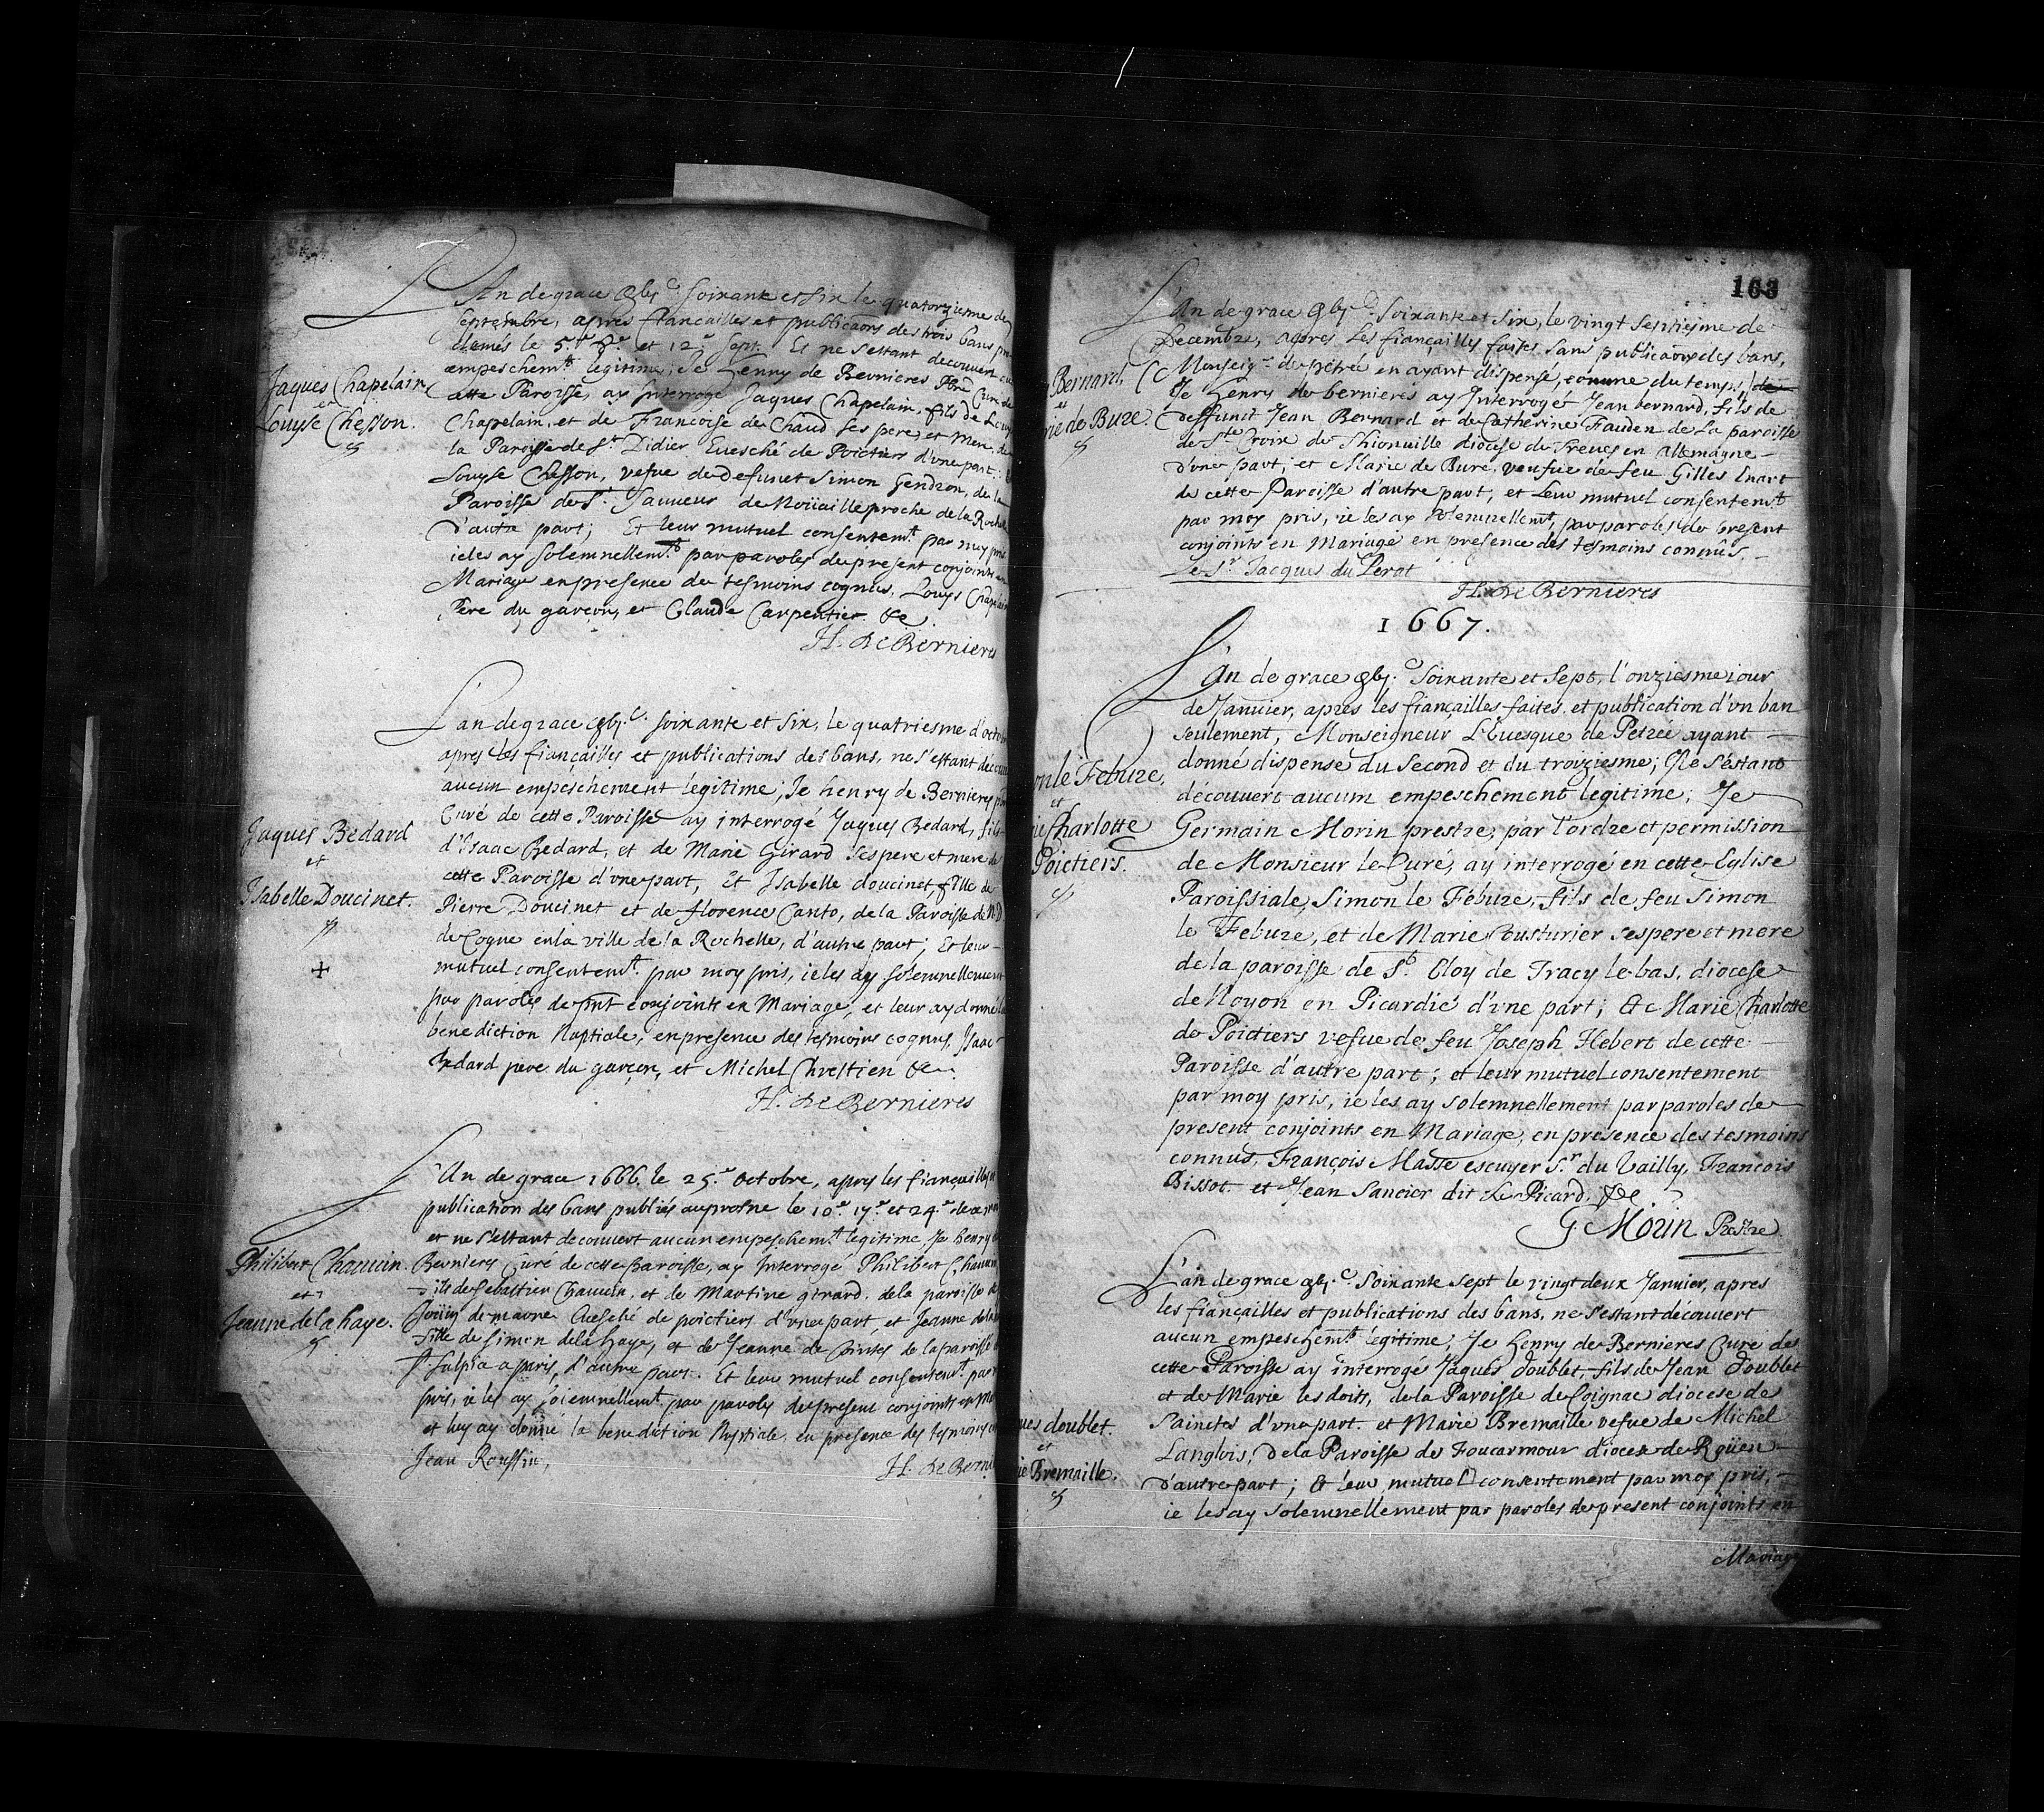 L'An de grace gbj.c soixante et six le quatorziesme de
septembre, apres fiancailles et publicaõns des trois bans
clamés le 5.e 8.e et 12.e sept. Et ne s'estant decouvert
empeschem.t legitime; Je henry de Bernieres Pbre Curé de
cette Paroisse, ay Interrogé Jaques Chapelain, fils de Louys
Chapelain, et de Francoise de Chaud ses pere, et Mere, de
la Paroisse de S.t Didier Evesché de Poictiers d'vne part:
Louyse Chesson, vefue de defunct Simon Gendron, de la
Paroisse de S.t Sauueur de Noüaille proche de la Rochelle
d'autre part; Et leur mutuel consentem.t par moy pris
ie les ay solemnellem.t par paroles de present conjoints en
Mariage en presence de tesmoins cognus, Louys Chapelain
Pere du garcon, et Claude Carpentier &c.
H. de Bernieres
Jaques Chapelain
et
Louyse Chesson.
L'an de grace gbj.c soixante et six, le quatriesme d'octobre
apres les fiançailles et publications des bans, ne s'estant decouvert
aucun empeschement legitime, Je henry de Bernieres
Curé de cette Paroisse ay interrogé Jaques Bedard, fils
d'Isaac Bedard, et de Marie Girard ses pere et mere de
cette Paroisse d'vne part, Et Isabelle doucinet, fille de
Pierre Doucinet et de florence Canto, de la Paroisse de N.D.
de Cogne en la ville de la Rochelle, d'autre part; Et leur
mutuel consentem.t par moy pris, ie les ay solemnellement
par paroles de pñt conjoints en Mariage, et leur ay donné la
benediction Nuptiale, en presence des tesmoins cognus, Isaac
Bedard pere du garçon, et Michel Chrestien &c.
H. de Bernieres
Jaques Bedard
et
Isabelle Doucinet.
+
L'An de grace 1666. le 25.e Octobre, apres les fiançailles et
publication des bans publiés au prosne le 10.e 17.e et 24.e de ce mois
et ne s'estant decouvert aucun empeschem.t legitime, Je henry de
Bernieres Curé de cette paroisse, ay Interrogé Philibert Chauuin
fils de Sebastien Chauuin, et de Martine girard, de la paroisse de
de maure Euesché de poictiers d'vne part, et Jeanne de la haye
fille de Simon de la haye, et de Jeanne de Cointes de la paroisse
S.t Sulpice a paris, d'autre part. Et leur mutuel consentem.t par
pris, ie les ay solemnellem.t par paroles de present conjoints en
et luy ay donné la benediction Nuptiale, en presence des tesmoins
Jean Roussin,
H. de Berni
Philibert Chauuin.
et
Jeanne de la haye.
163
L'An de grace gbj.c soixante et six, le vingt septiesme de
Decembre, apres les fiançailles faites sans publicaõn des bans,
Monseig.r de petrée en ayant dispensé, comme du temps,
Je henry de bernieres ay Interrogé Jean bernard, fils de
deffunct Jean Bernard et de Catherine Fauden de la paroisse
de S.te Croix de Thionuille diocese de Treues en allemagne
d'one part; et Marie de Bure, veufue de feu Gilles Enart
de cette Paroisse d'autre part, et leur mutuel consentem.t
par moy pris, ie les ay solemnellem.t par paroles de present
conjoints en Mariage en presence des tesmoins connûs,
le S.r Jacques du Lerat
H. de Bernieres
Bernard,
et
rie de Bure.
1667.
L'An de grace gbj.c soixante et sept, l'onziesme iour
de Januier, apres les fiançailles faites et publication d'vn ban
seulement, Monseigneur L'Euesque de Petrée ayant
donné dispense du second et du troiziesme; Ne s'estant
découuert aucum empeschement legitime; Je
Germain Morin prestre, par l'ordre et permission
de Monsieur le Curé, ay interrogé en cette Eglise
Paroissiale, Simon le Febure, fils de feu Simon
le Febure, et de Marie Cousturier ses pere et mere
de la paroisse de S.t Eloy de Tracy le bas, diocese
de Noyon en Picardie d'vne part; Et Marie Charlotte
de Poictiers vefue de feu Joseph Hebert de cette
Paroisse d'autre part; et leur mutuel consentement
par moy pris, ie les ay solemnellement par paroles de
present conjoints en Mariage, en presence des tesmoins
connus, François Masse escuyer S.r du Vailly, Francois
Bissot. et Jean Sancier dit Le Picard, &c
G Morin Prestre
on le Febure,
et
ie Charlotte
Poictiers.
L'an de grace gbj.c soixante sept le vingt deux Januier, apres
les fiançailles et publications des bans, ne s'estant découvert
aucun empeschem.t legitime, Je henry de Bernieres Curé de
cette Paroisse ay interrogé Jaques doublet, fils de Jean doublet
et de Marie les doits, de la Paroisse de Coignac diocese de
Sainctes d'vne part. et Marie Bremaille vefue de Michel
Langlois, de la Paroisse de Foucarmour diocese de Roüen
d'autre part; Et leur mutuel consentement par moy pris,
ie les ay solemnellement par paroles de present conjoints en
Mariage
ues doublet.
et
ie Bremaille.